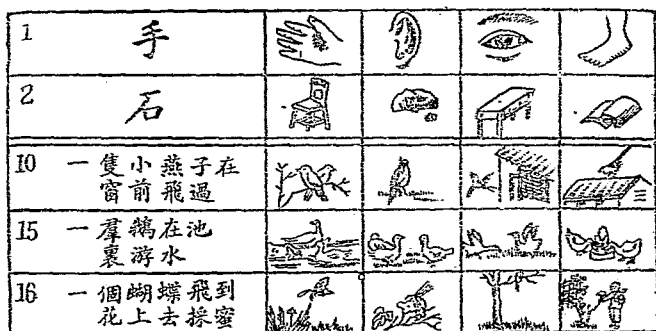 1 手
2 石
10 一隻小燕子在
窗前飛過
15 一羣鵝在池
裏游水
16 一個蝴蝶飛到
花上去採蜜